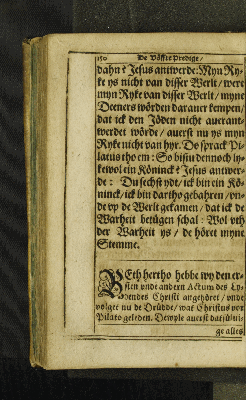 150 De Vöffte Predige/
dahn? Jesus antwerde: Myn Ry-
ke ys nicht van disser Werlt/ were
myn Ryke van disser Werlt/ myne
Deeners wörden darauer kempen/
dat ick den Jöden nicht auerant-
werdet wörde/ auerst nu ys myn
Ryke nicht van hyr. Do sprack Pi-
latus tho em: So bistu dennoch ly-
kewol ein Köninck? Jesus antwer-
de: Du sechst ydt/ ick bin ein Kö-
ninck/ ick bin dartho gebahren/ vn-
de vp de Werlt gekamen/ dat ick de
Warheit betügen schal: Wol vth
der Warheit ys/ de höret myne
Stemme.
Beth hertho hebbe wy den er-
sten vnde andern Actum des Ly-
dendes Christi angehöret/ vnde
volget nu de Drüdde/ wat Christus vor
Pilato geleden. Dewyle auerst
ge alles